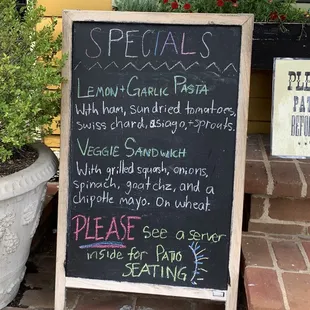 SPECIALS
LEMON + GARLIC PASTA
With ham, sundried tomatoes,
swiss chard, asiago, + sprouts.
VEGGIE SANDWICH
With grilled squash, onions,
spinach, goatchz, and a
chipotle mayo. On wheat.
PLEASE see a server
inside for PATIO
SEATING